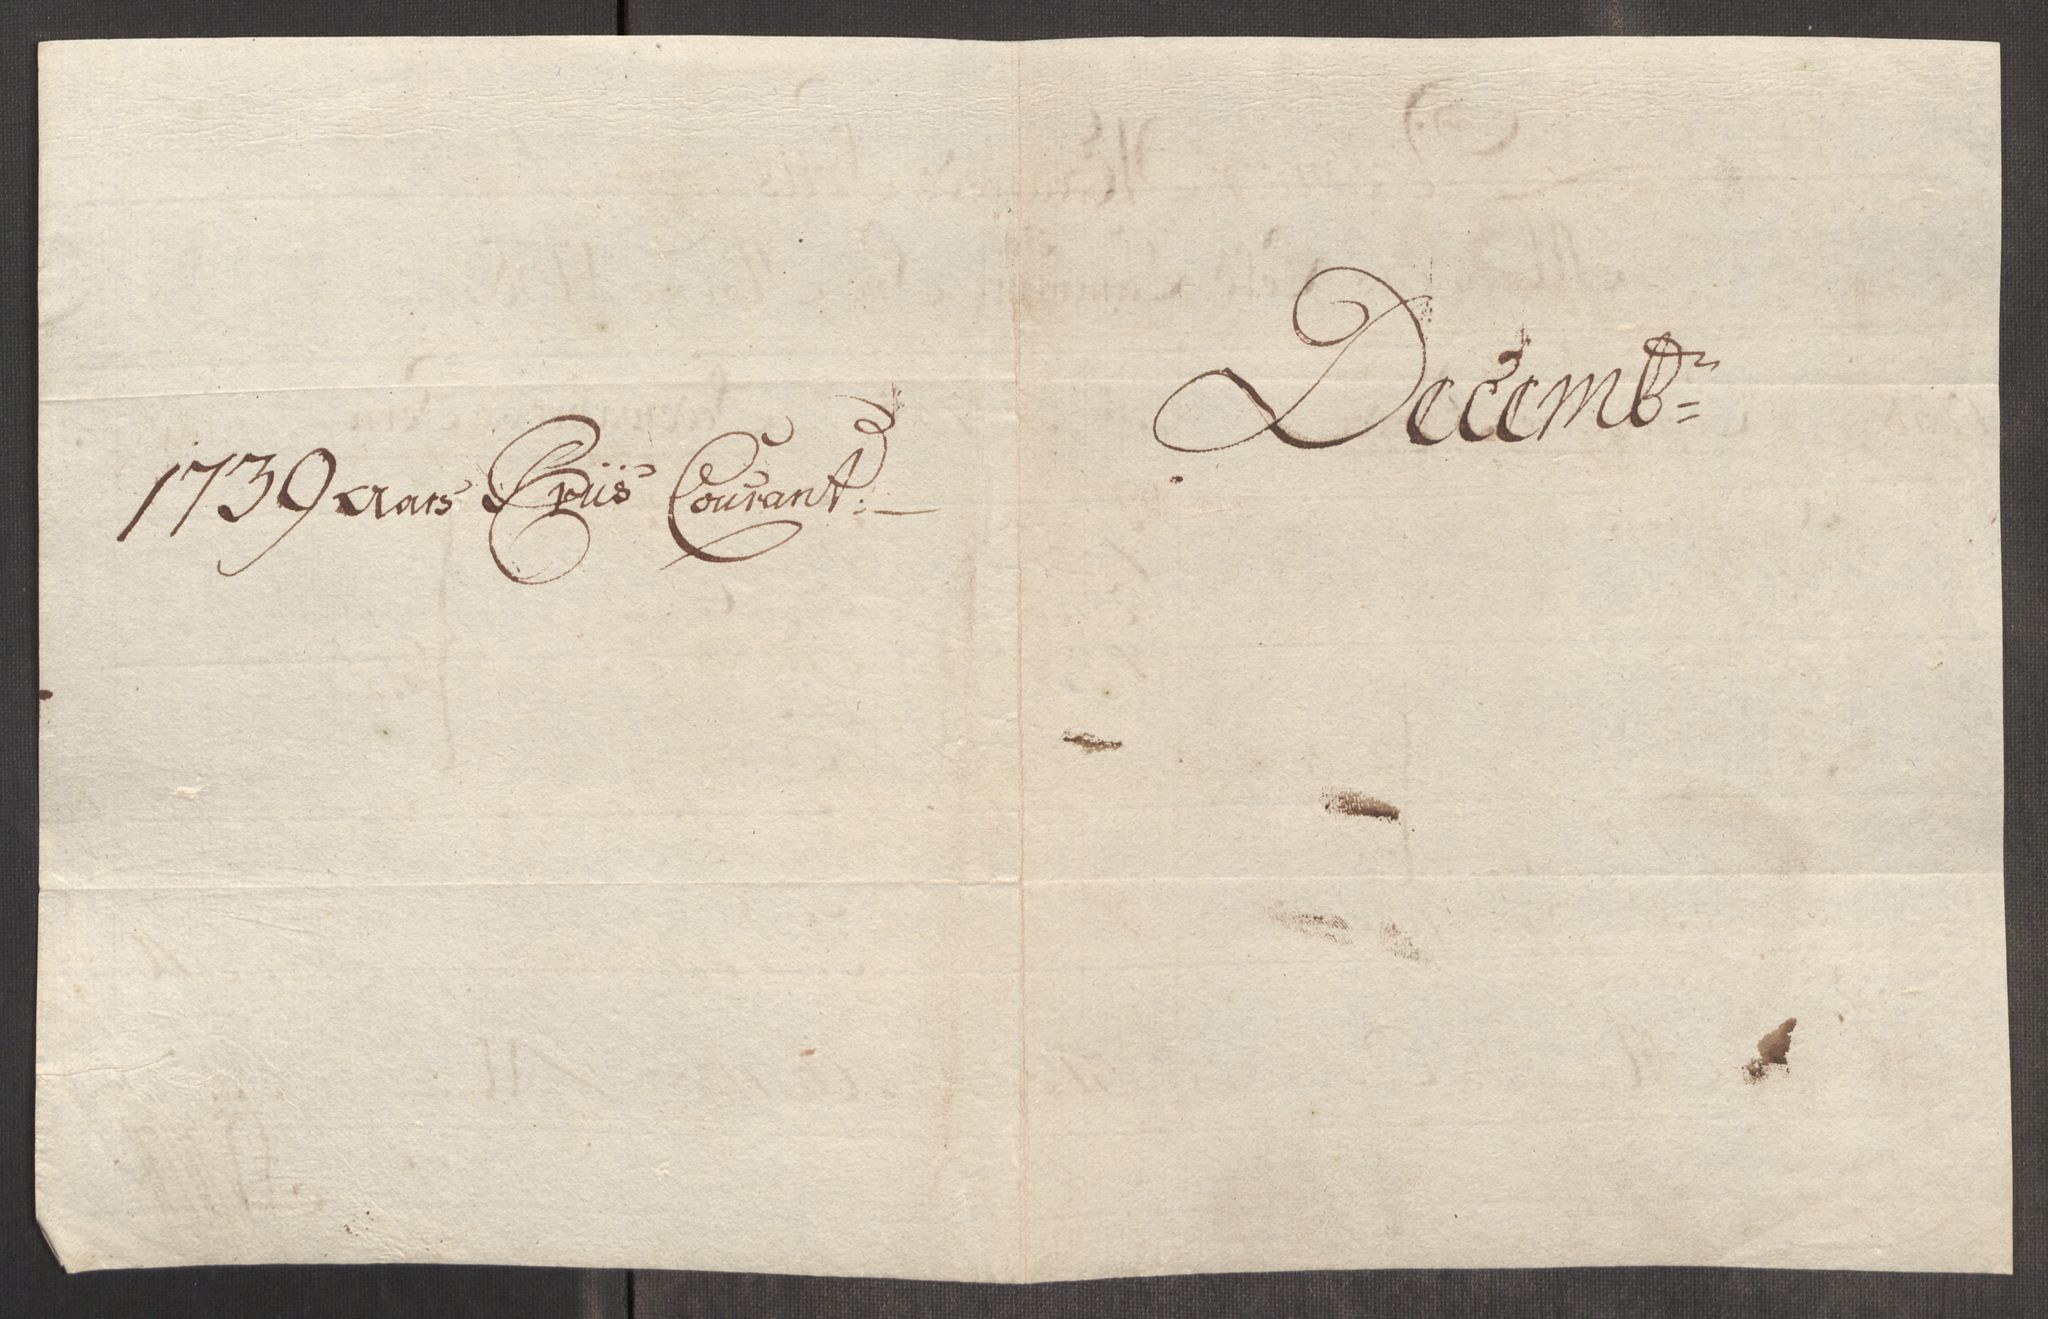 1739 Aars Priis Courant:
Decembr